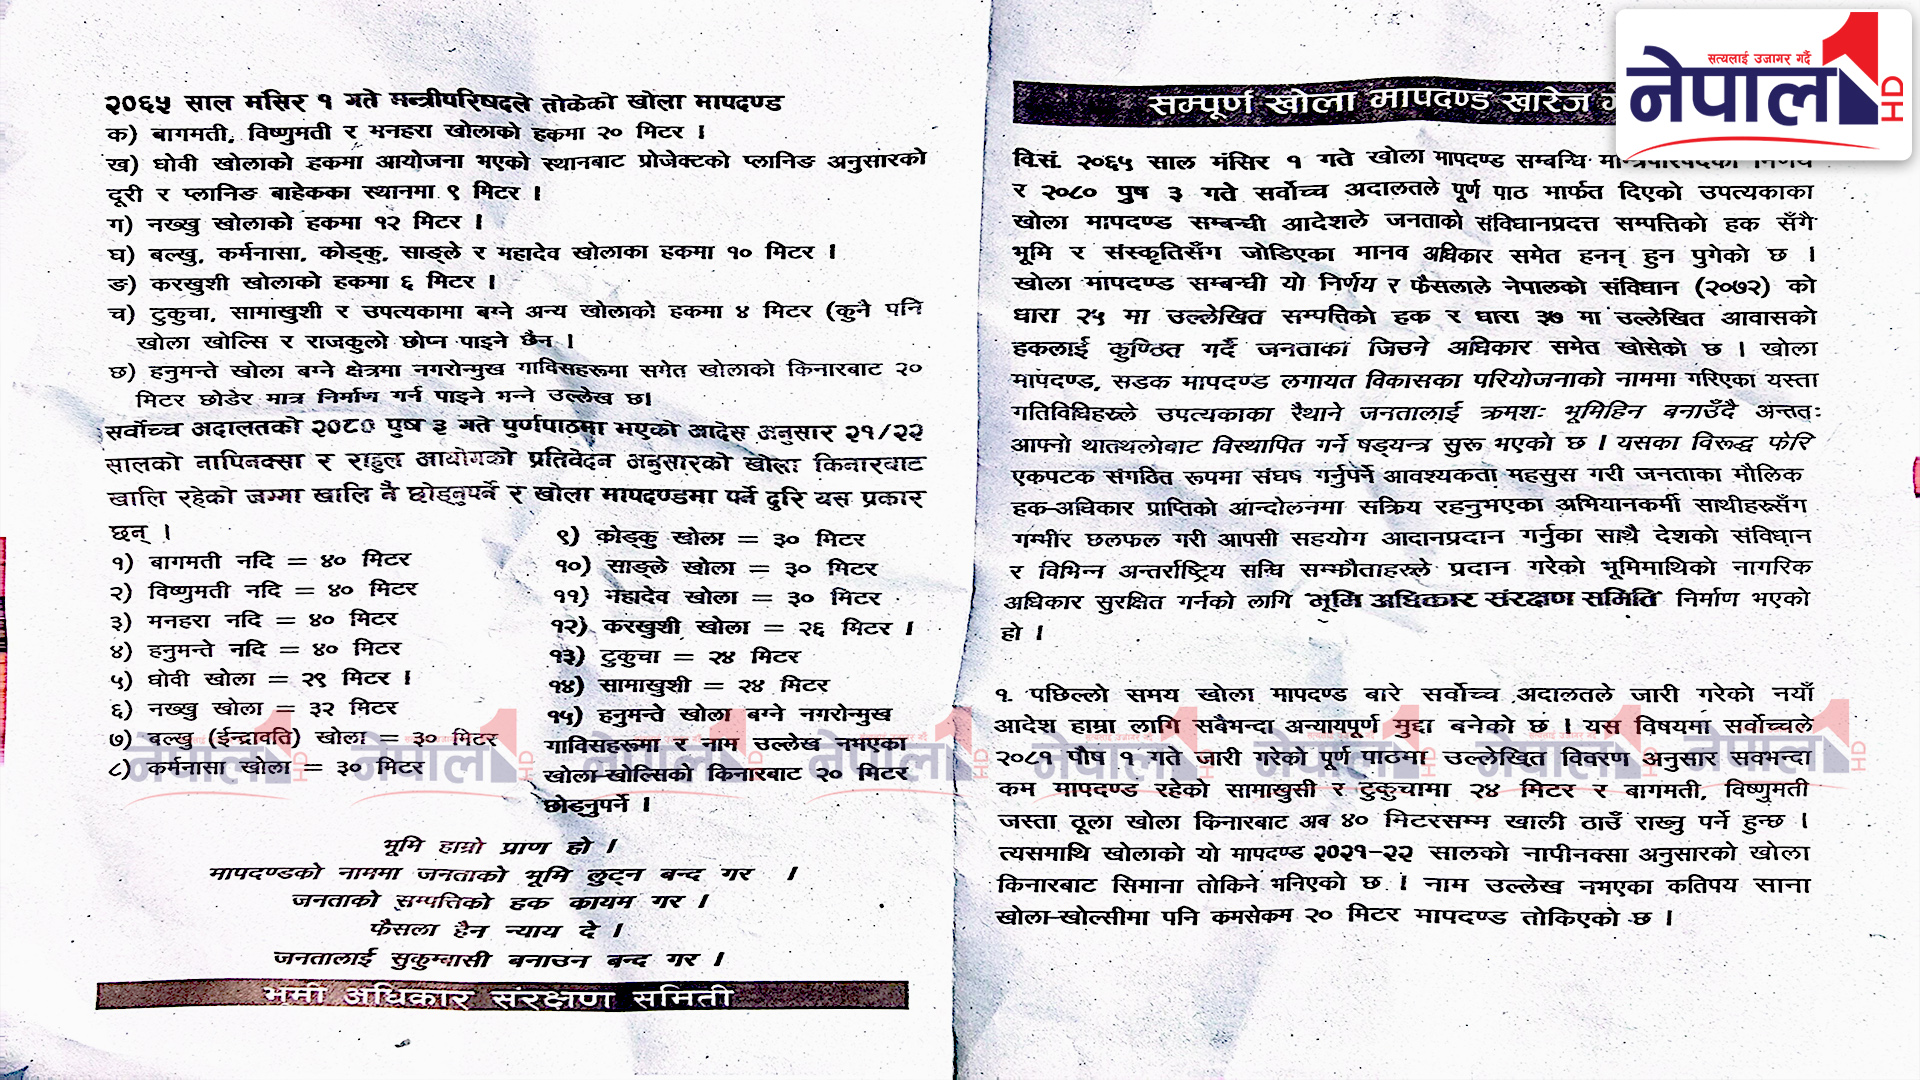 २०६५ साल मंसिर १ गते मन्त्रीपरिषदले तोकेको खोला मापदण्ड
क) बागमती, विष्णुमती र मनहरा खोलाको हकमा २० मिटर ।
ख) धोवी खोलाको हकमा आयोजना भएको स्थानबाट प्रोजेक्टको प्लानिङ अनुसारको
दूरी र प्लानिङ बाहेकका स्थानमा ९ मिटर ।
ग) नख्खु खोलाको हकमा १२ मिटर ।
घ) बल्खु, कर्मनासा, कोड्कु, साङ्ले र महादेव खोलाका हकमा १० मिटर ।
ङ) करखुशी खोलाको हकमा ६ मिटर ।
च) टुकुचा, सामाखुशी र उपत्यकामा बग्ने अन्य खोलाको हकमा ४ मिटर (कुनै पनि
खोला खोल्सि र राजकुलो छोप्न पाइने छैन ।
छ) हनुमन्ते खोला बग्ने क्षेत्रमा नगरोन्मुख गाविसहरूमा सगेत खोलाको किनारबाट २०
मिटर छोडेर मात्र निर्माण गर्न पाइने भन्ने उल्लेख छ।
सर्वोच्च अदालतको २०८० पुष ३ गते पुर्णपाठमा भएको आदेस अनुसार २१/२२
सालको नापिनक्सा र राहुल आयोगको प्रतिवेदन अनुसारको खोला किनारबाट
खालि रहेको जम्मा खालि नै छोड्नुपर्ने र खोला मापदण्डमा पर्ने दुरि यस प्रकार
छन् ।
१) बागमती नदि = ४० मिटर
२) विष्णुमती नदि = ४० मिटर
३) मनहरा नदि = ४० मिटर
४) हनुमन्ते नदि = ४० मिटर
५) धोवी खोला = २९ मिटर ।
६) नख्खु खोला = ३२ मिटर
७) बल्खु (ईन्द्रावति) खोला = ३० मिटर
८) कर्मनासा खोला = ३० मिटर
९) कोड्कु खोला = ३० मिटर
१०) साङ्ले खोला = ३० मिटर
११) महादेव खोला = ३० मिटर
१२) करखुशी खोला = २६ मिटर ।
१३) टुकुचा = २४ मिटर
१४) सामाखुशी = २४ मिटर
१५) हनुमन्ते खोला बग्ने नगरोन्मुख
गाविसहरूमा र नाम उल्लेख नभएका
खोला-खोल्सिको किनारबाट २० मिटर
छोड्नुपर्ने ।
भूमि हाम्रो प्राण हो ।
मापदण्डको नाममा जनताको भूमि लुट्न बन्द गर ।
जनताको सम्पत्तिको हक कायम गर ।
फैसला हैन न्याय दे ।
जनतालाई सुकुम्बासी बनाउन बन्द गर ।
भूमी अधिकार संरक्षण समिती
सम्पूर्ण खोला मापदण्ड खारेज
सत्यलाई उजागर गर्दै
नेपाल 1 HD
वि.सं. २०६५ साल मंसिर १ गते खोला मापदण्ड सम्बन्धि मन्त्रिपरिषदको निर्णय
र २०८० पुष ३ गते सर्वोच्च अदालतले पूर्ण पाठ मार्फत दिएको उपत्यकाका
खोला मापदण्ड सम्बन्धी आदेशले जनताको संविधानप्रदत्त सम्पत्तिको हक सँगै
भूमि र संस्कृतिसँग जोडिएका मानव अधिकार समेत हनन् हुन पुगेको छ ।
खोला मापदण्ड सम्बन्धी यो निर्णय र फैसलाले नेपालको संविधान (२०७२) को
धारा २५ मा उल्लेखित सम्पतिको हक र धारा ३७ मा उल्लेखित आवासको
हकलाई कुण्ठित गर्दै जनताका जिउने अधिकार समेत खोसेको छ । खोला
मापदण्ड, सडक मापदण्ड लगायत विकासका परियोजनाको नाममा गरिएका यस्ता
गतिविधिहरुले उपत्यकाका रैथाने जनतालाई क्रमशः भूमिहिन बनाउँदै अन्ततः
आफ्नो थातथलोबाट विस्थापित गर्ने षड्यन्त्र सुरू भएको छ । यसका विरूद्ध फेरि
एकपटक संगठित रूपमा संघष गर्नुपर्ने आवश्यकता महसुस गरी जनताका मौलिक
हक-अधिकार प्राप्तिको आन्दोलनमा सक्रिय रहनुभएका अभियानकर्मी साथीहरुसँग
गम्भीर छलफल गरी आपसी सहयोग आदानप्रदान गर्नुका साथै देशको संविधान
र विभिन्न अन्तर्राष्ट्रिय सन्धि सम्झौताहरुले प्रदान गरेको भूमिमाथिको नागरिक
अधिकार सुरक्षित गर्नको लागि भूमि अधिकार संरक्षण समिति निर्माण भएको
हो ।
१. पछिल्लो समय खोला मापदण्ड बारे सर्वोच्च अदालतले जारी गरेको नयाँ
आदेश हाम्रा लागि सबैभन्दा अन्यायपूर्ण मुद्दा बनेको छ । यस विषयमा सर्वोच्चले
२०८१ पौष १ गते जारी गरेको पूर्ण पाठमा उल्लेखित विवरण अनुसार सवभन्दा
कम मापदण्ड रहेको सामाखुसी र टुकुचामा २४ मिटर र बागमती, विष्णुमती
जस्ता ठूला खोला किनारबाट अब ४० मिटरसम्म खाली ठाउँ राख्नु पर्ने हुन्छ ।
त्यसमाथि खोलाको यो मापदण्ड २०२१-२२ सालको नापीनक्सा अनुसारको खोला
किनारबाट सिमाना तोकिने भनिएको छ । नाम उल्लेख नभएका कतिपय साना
खोला-खोल्सीमा पनि कमसेकम २० मिटर मापदण्ड तोकिएको छ ।